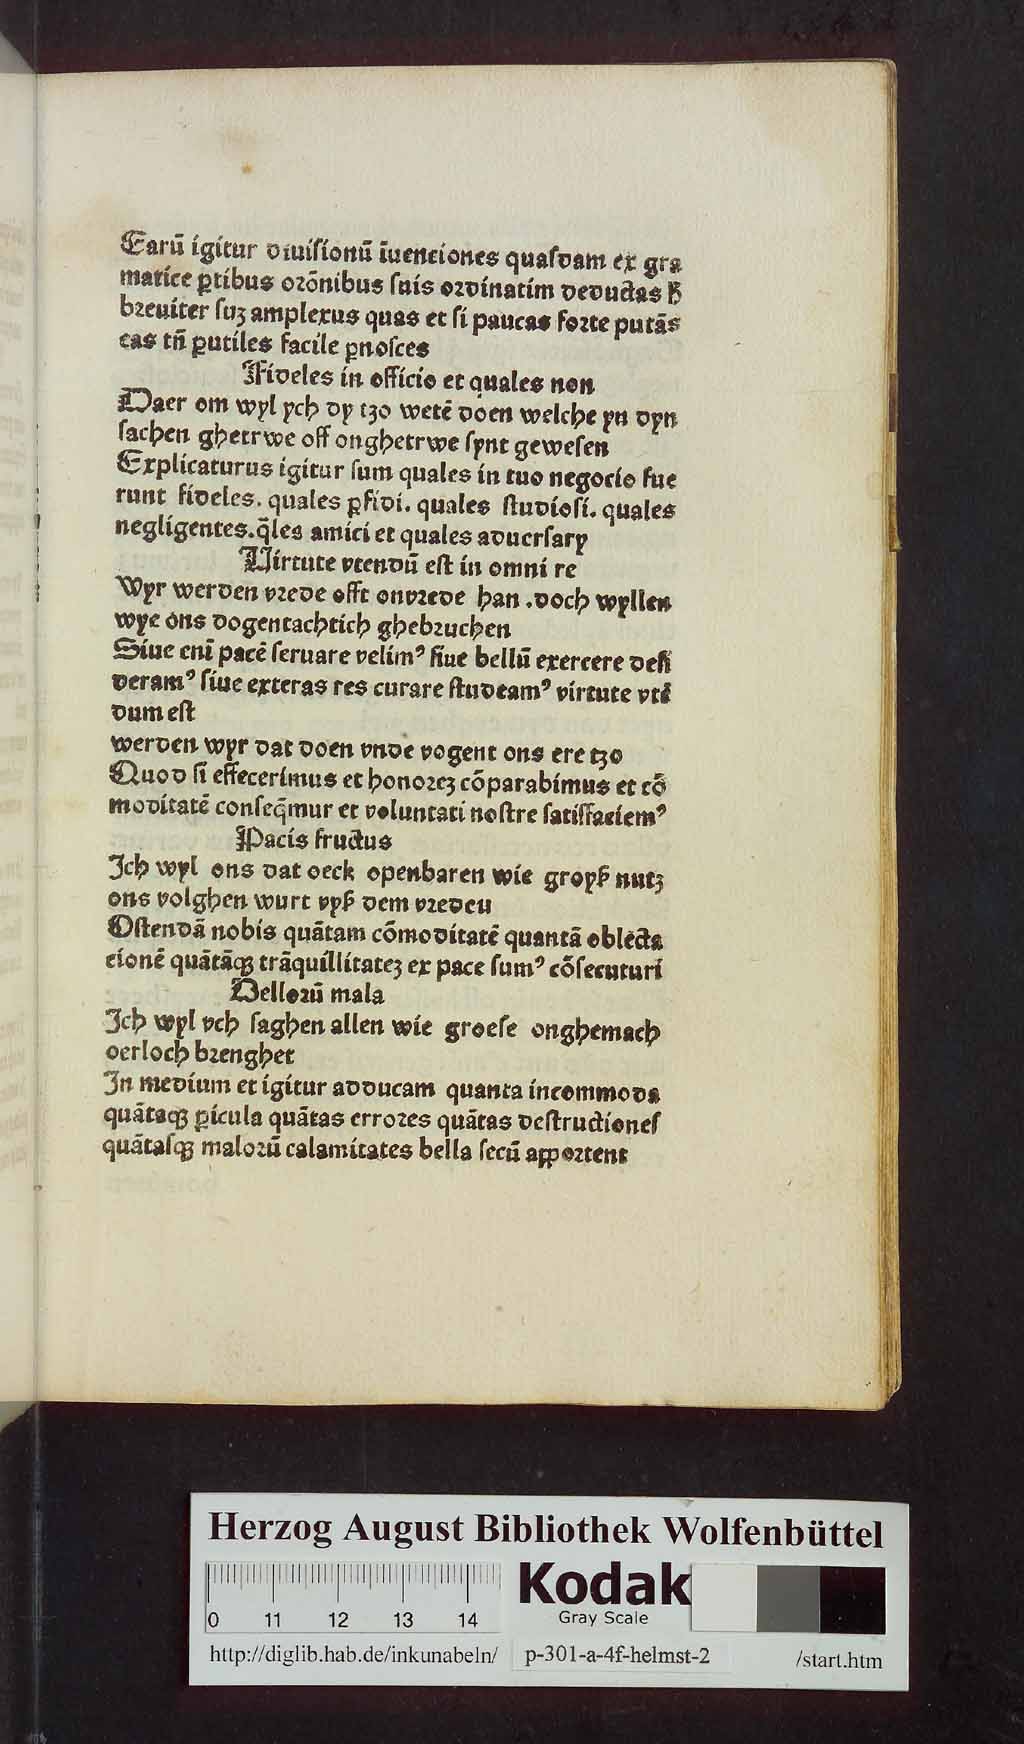 Earū igitur diuisionū īuenciones quasdam ex gra
matice ꝑtibus orōnibus suis ordinatim deductas
breuiter suꝫ amplexus quas et si paucas forte putās
eas tñ ꝑutiles facile ꝑnosces
Fideles in officio et quales non
Daer om wyl ych dy tzo wetē doen welche yn dyn
sachen ghetrwe off onghetrwe synt gewesen
Explicaturus igitur sum quales in tuo negocio fue
runt fideles. quales ꝑfidi. quales studiosi. quales
negligentes. q̄les amici et quales aduersary
Uirtute vtendū est in omni re
Wyr werden vrede offt onvrede han .doch wyllen
wye ons dogentachtich ghebruchen
Siue enī pacē seruare velimꝰ siue bellū exercere desi
deramꝰ siue exteras res curare studeamꝰ virtute vtē
dum est
werden wyr dat doen vnde vogent ons ere tzo
Quod si effecerimus et honoreꝫ cōparabimus et cō
moditatē conseq̄mur et voluntati nostre satisfaciemꝰ
Pacis fructus
Ich wyl ons dat oeck openbaren wie groyß nutz
ons volghen wurt vyß dem vredeu
Ostendā nobis quātam cōmoditatē quantā oblecta
cionē quātāqꝫ trāquillitateꝫ ex pace sumꝰ cōsecuturi
Bellorū mala
Ich wyl vch saghen allen wie groese onghemach
oerloch brenghet
In medium et igitur adducam quanta incommoda
quātaqꝫ ꝑicula quātas errores quātas destructiones
quātasqꝫ malorū calamitates bella secū apportent
Herzog August Bibliothek Wolfenbüttel
Kodak
Gray Scale
0 11 12 13 14
http://diglib.hab.de/inkunabeln/ p-301-a-4f-helmst-2 /start.htm